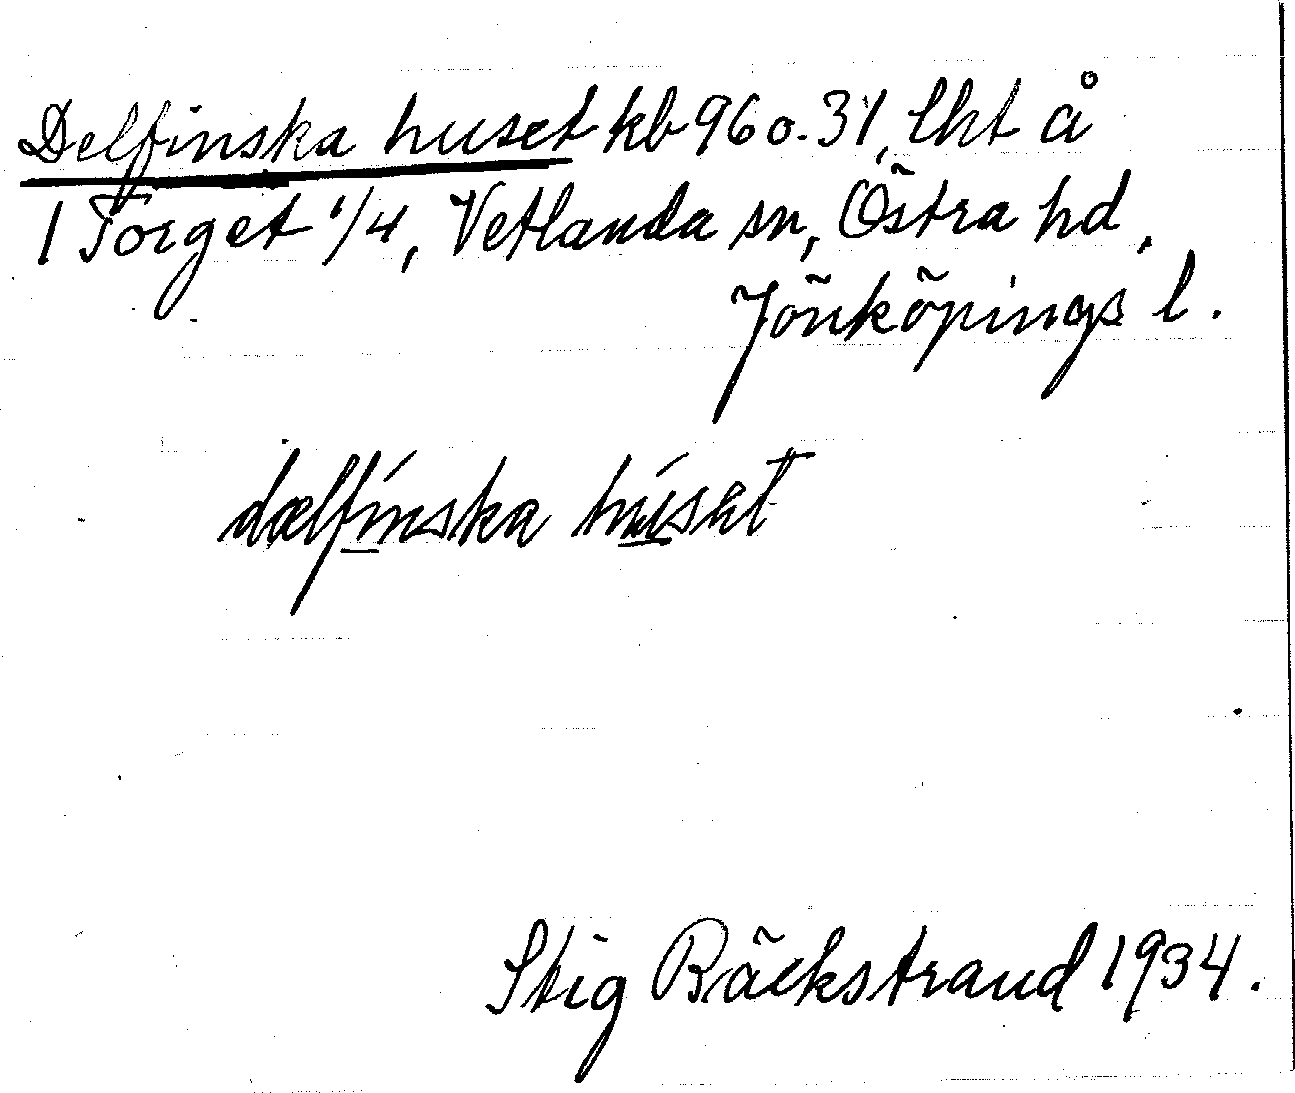 Delfinska huset kb 96 o. 31, lht å
1 Torget 1/4, Vetlanda sn, Östra hd,
Jönköpings l.
dælfinska húsət
Stig Bäckstrand 1934.